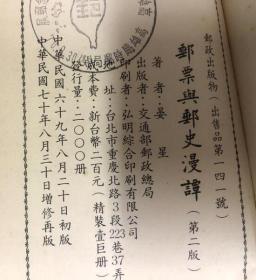 郵政出版物(出售品第一四一號)
郵票與郵史漫譚(第二版)
著者:晏星
出版者:交通部郵政總局
印刷者:弘明綜合印刷有限公司
地址:台北市重慶北路3段223巷37弄
成本費:新台幣二百元(精裝壹巨册)
發行量:二〇〇〇册
中華民國六十九年八月二十日初版
中華民國七十年八月三十日增修再版